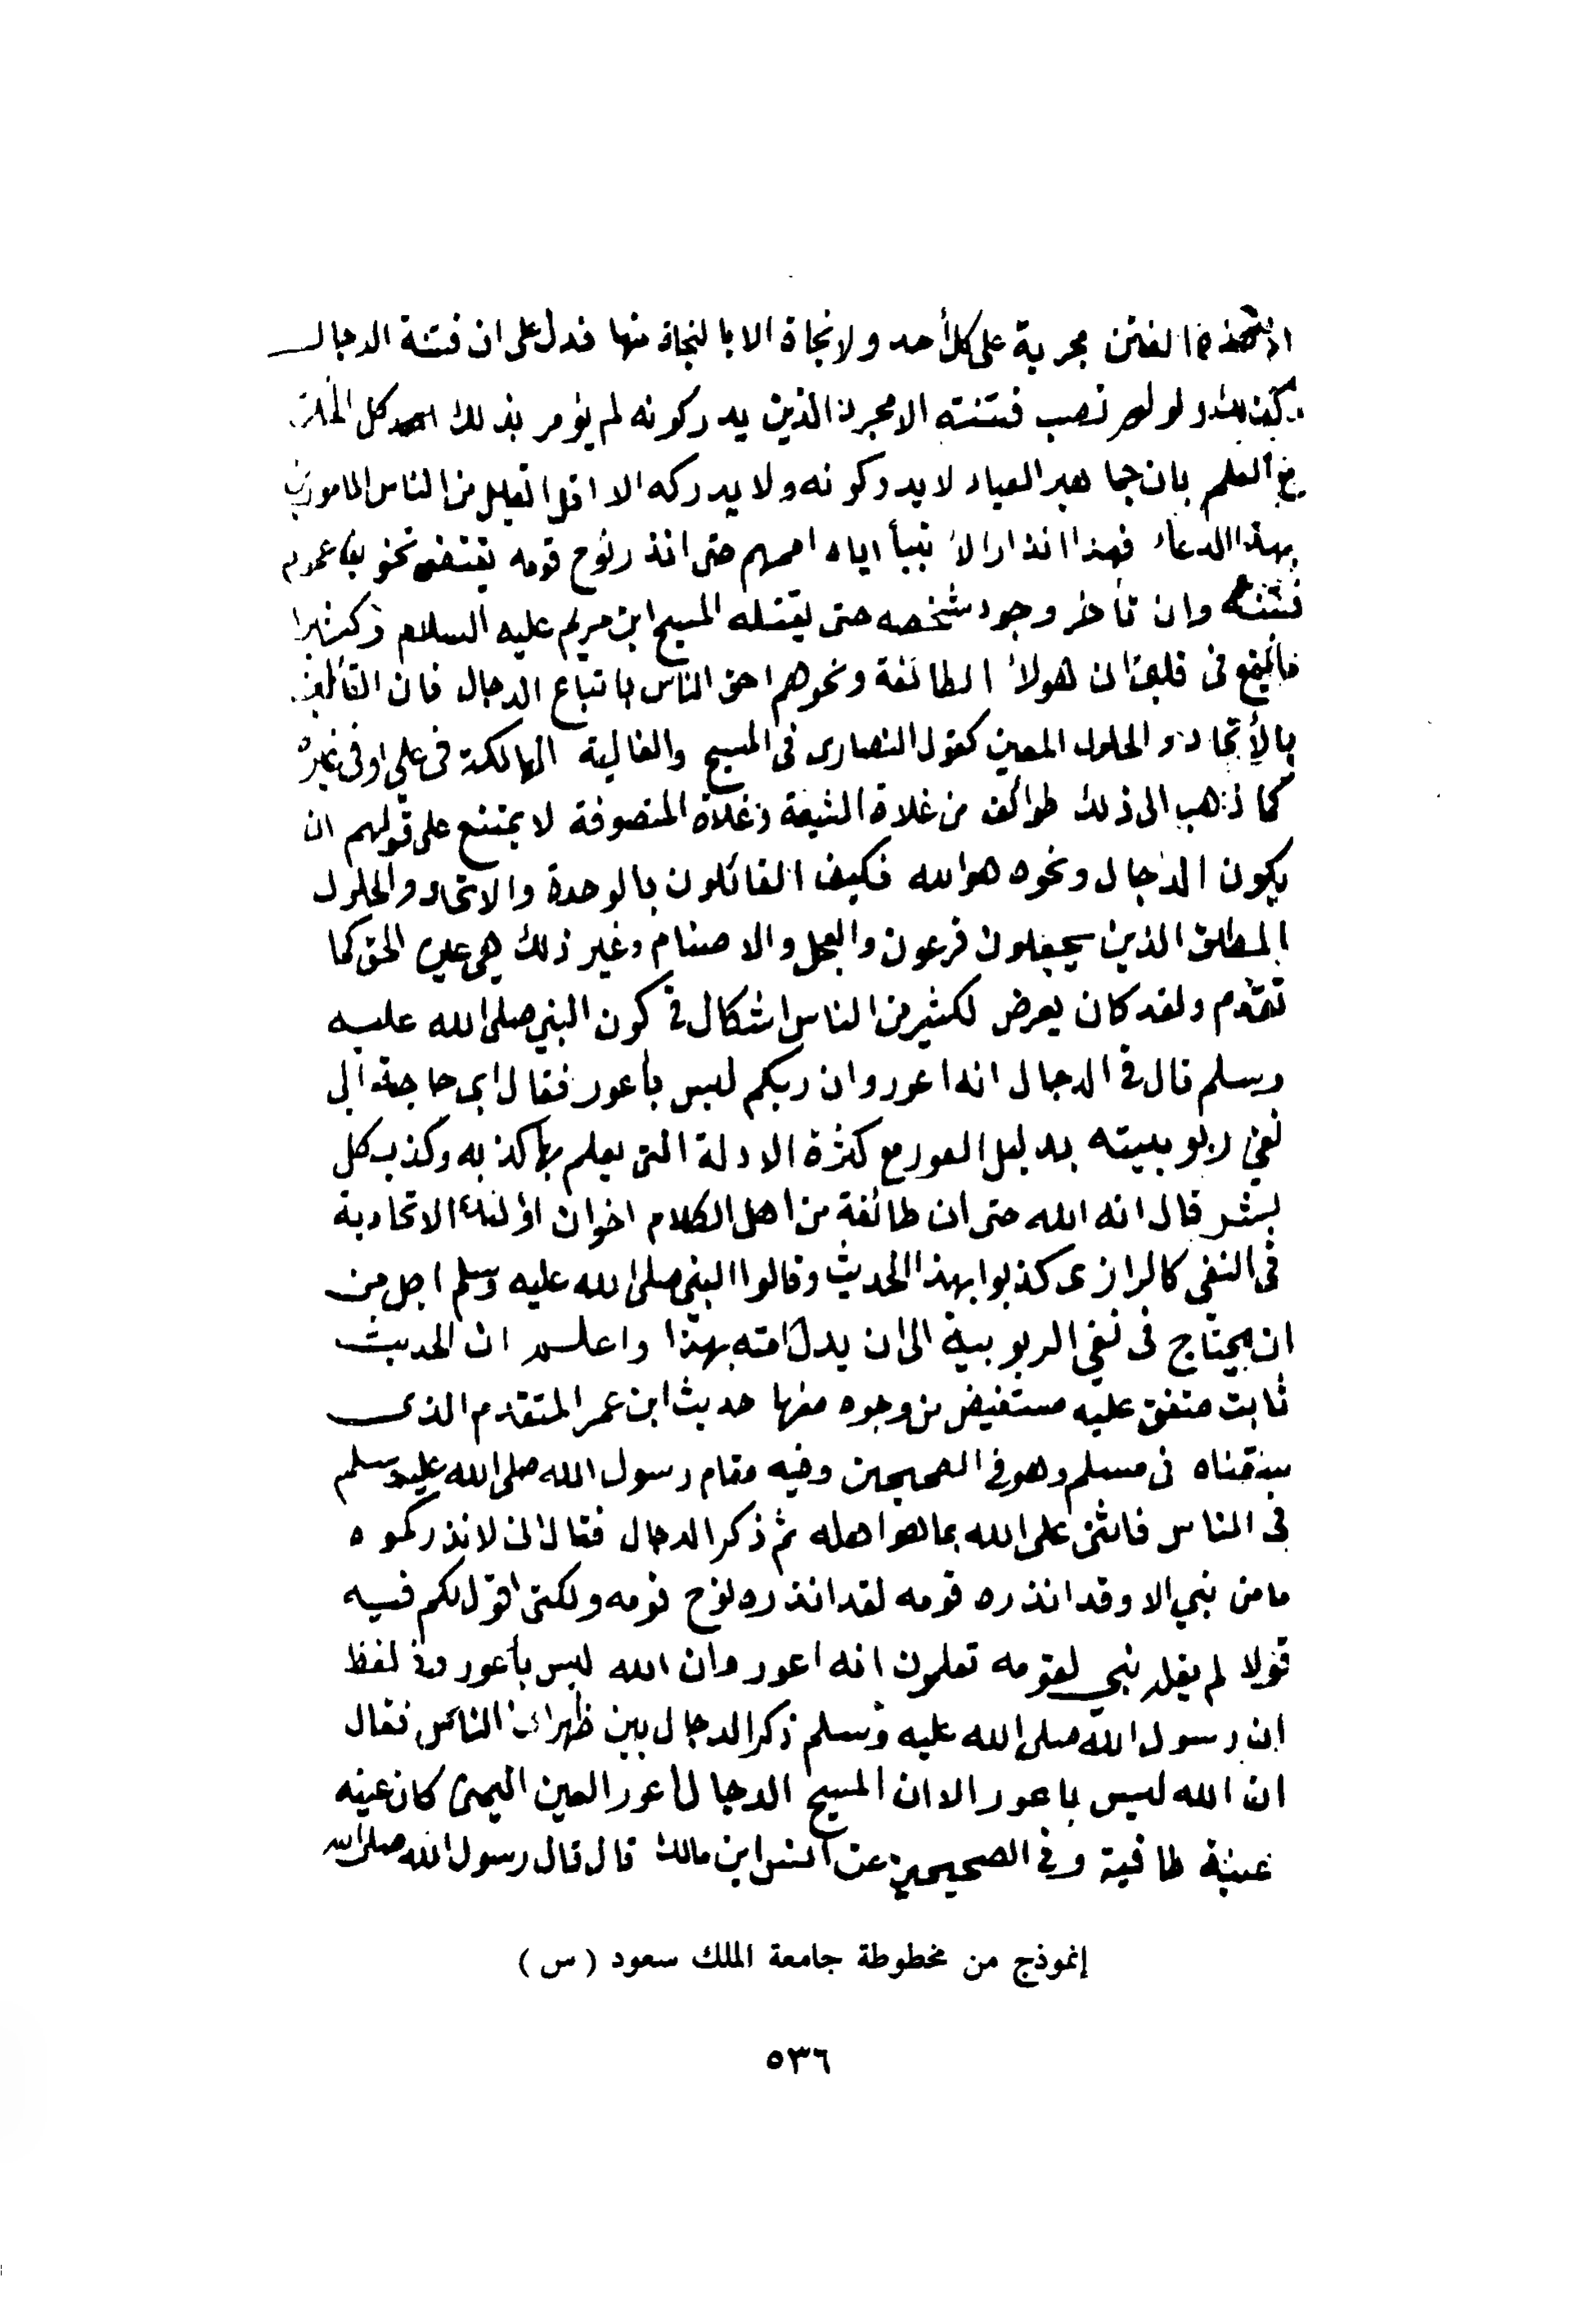 الفتن مجرية على كل أحد ولا نجاة الا بالنجاة منها فدل على ان فتنة الدجال
ولو لم تصب فتنته الا مجرد الذين يدركونه لم يؤمر بذلك كل
مع العلم بان جماهير العباد لا يدركونه ولا يدركه الا اقل القليل من الناس المامورين
بهذا الدعاء فهذا انذار الانبيأ اياه اممهم حتى انذر نوح قومه يقتضى نحو عموم
فتنته وان تأخر وجود شخصه حتى يقتله المسيح ابن مريم عليه السلام وكثيرا
ما يقع فى قلبى ان هولأ الطائفة ونحوهم احق الناس باتباع الدجال فان القائلين
بالإتحاد والحلول المعين كقول النصارى فى المسيح والغالية الهالكة فى على او فى غيره
كما ذهب الى ذلك طوائف من غلاة الشيعة وغلاة المتصوفة لا يمتنع على قولهم ان
يكون الدجال ونحوه هو الله فكيف القائلون بالوحدة والاتحاد والحلول
المطلق الذين يجعلون فرعون والعجل والاصنام وغير ذلك هى عين الحق كما
تقدم ولقد كان يعرض لكثير من الناس اشكال في كون النبي صلى الله عليه
وسلم قال في الدجال انه اعور وان ربكم ليس بأعور فقال اى حاجة الى
نفي ربوبيته بدليل العور مع كثرة الادلة التى يعلم بها كذبه وكذب كل
بشر قال انه الله حتى ان طائفة من اهل الكلام اخوان اؤلئك الاتحادية
فى النفى كالرازى كذبوا بهذا الحديث وقالوا النبي صلى الله عليه وسلم اجل من
ان يحتاج فى نفي الربوبية الى ان يدل امته بهذا واعلم ان الحديث
ثابت متفق عليه مستفيض من وجوه منها حديث ابن عمر المتقدم الذى
سقناه فى مسلم وهو في الصحيحين وفيه فقام رسول الله صلى الله عليه وسلم
فى الناس فاثنى على الله بما هو اهله ثم ذكر الدجال فقال انى لانذركموه
ما من نبي الا وقد انذره قومه لقد انذره نوح قومه ولكنى اقول لكم فيه
قولا لم يقله نبي لقومه تعلمون انه اعور وان الله ليس بأعور وفى لفظ
ان رسول الله صلى الله عليه وسلم ذكر الدجال بين ظهرانى الناس فقال
ان الله ليس باعور الا ان المسيح الدجال أعور العين اليمنى كان عينه
عنبة طافية وفي الصحيحين عن انس ابن مالك قال قال رسول الله صلى الله
إنموذج من مخطوطة جامعة الملك سعود ( س )
٥٣٦